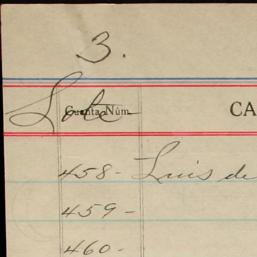 3.
Lote Cuenta Núm. CA
458- Luis de
459-
460-